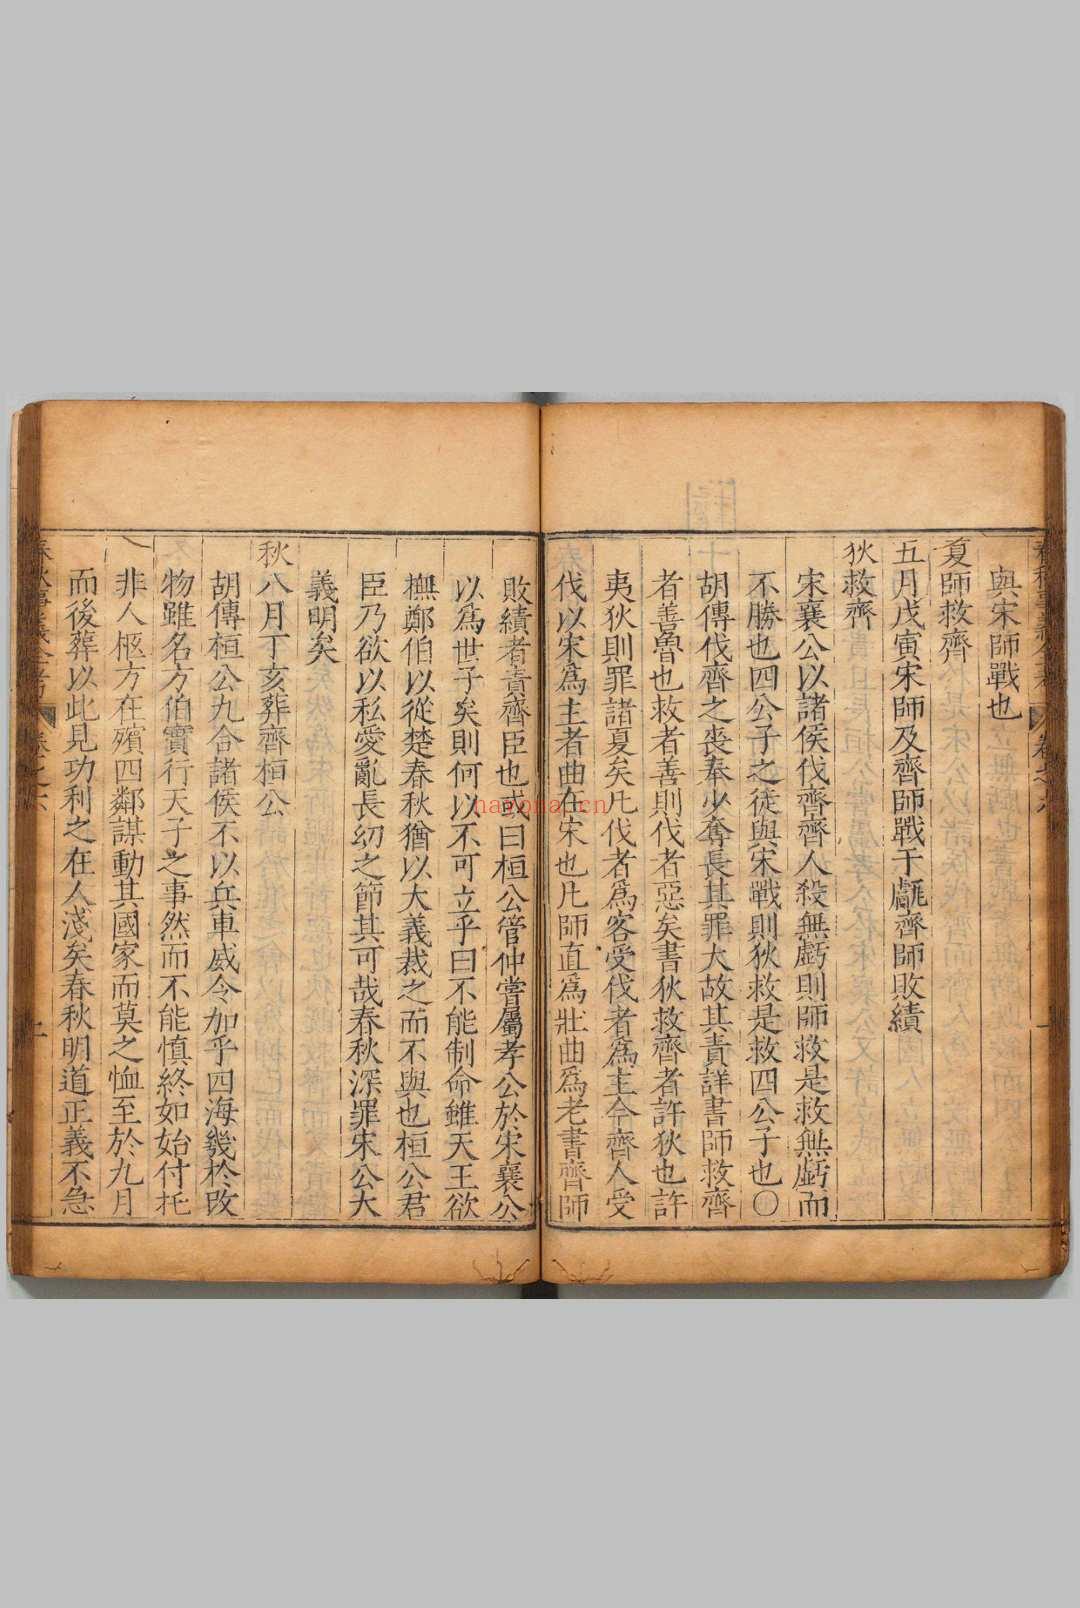 與宋師戰也
夏師救齊
五月戊寅宋師及齊師戰于甗齊師敗績
狄救齊
宋襄公以諸侯伐齊齊人殺無虧則師救是救無虧而
不勝也四公子之徒與宋戰則狄救是救四公子也〇
胡傳伐齊之喪奉少奪長其罪大故其責詳書師救齊
者善魯也救者善則伐者惡矣書狄救齊者許狄也許
夷狄則罪諸夏矣凡伐者爲客受伐者爲主今齊人受
伐以宋爲主者曲在宋也凡師直爲壯曲爲老書齊師
敗績者責齊臣也或曰桓公管仲嘗屬孝公於宋襄公
以爲世子矣則何以不可立乎曰不能制命雖天王欲
撫鄭伯以從楚春秋猶以大義裁之而不與也桓公君
臣乃欲以私愛亂長幼之節其可哉春秋深罪宋公大
義明矣
秋八月丁亥葬齊桓公
胡傳桓公九合諸侯不以兵車威令加乎四海幾於改
物雖名方伯實行天子之事然而不能慎終如始付托
非人柩方在殯四鄰謀動其國家而莫之恤至於九月
而後葬以此見功利之在人淺矣春秋明道正義不急
hayona.cn